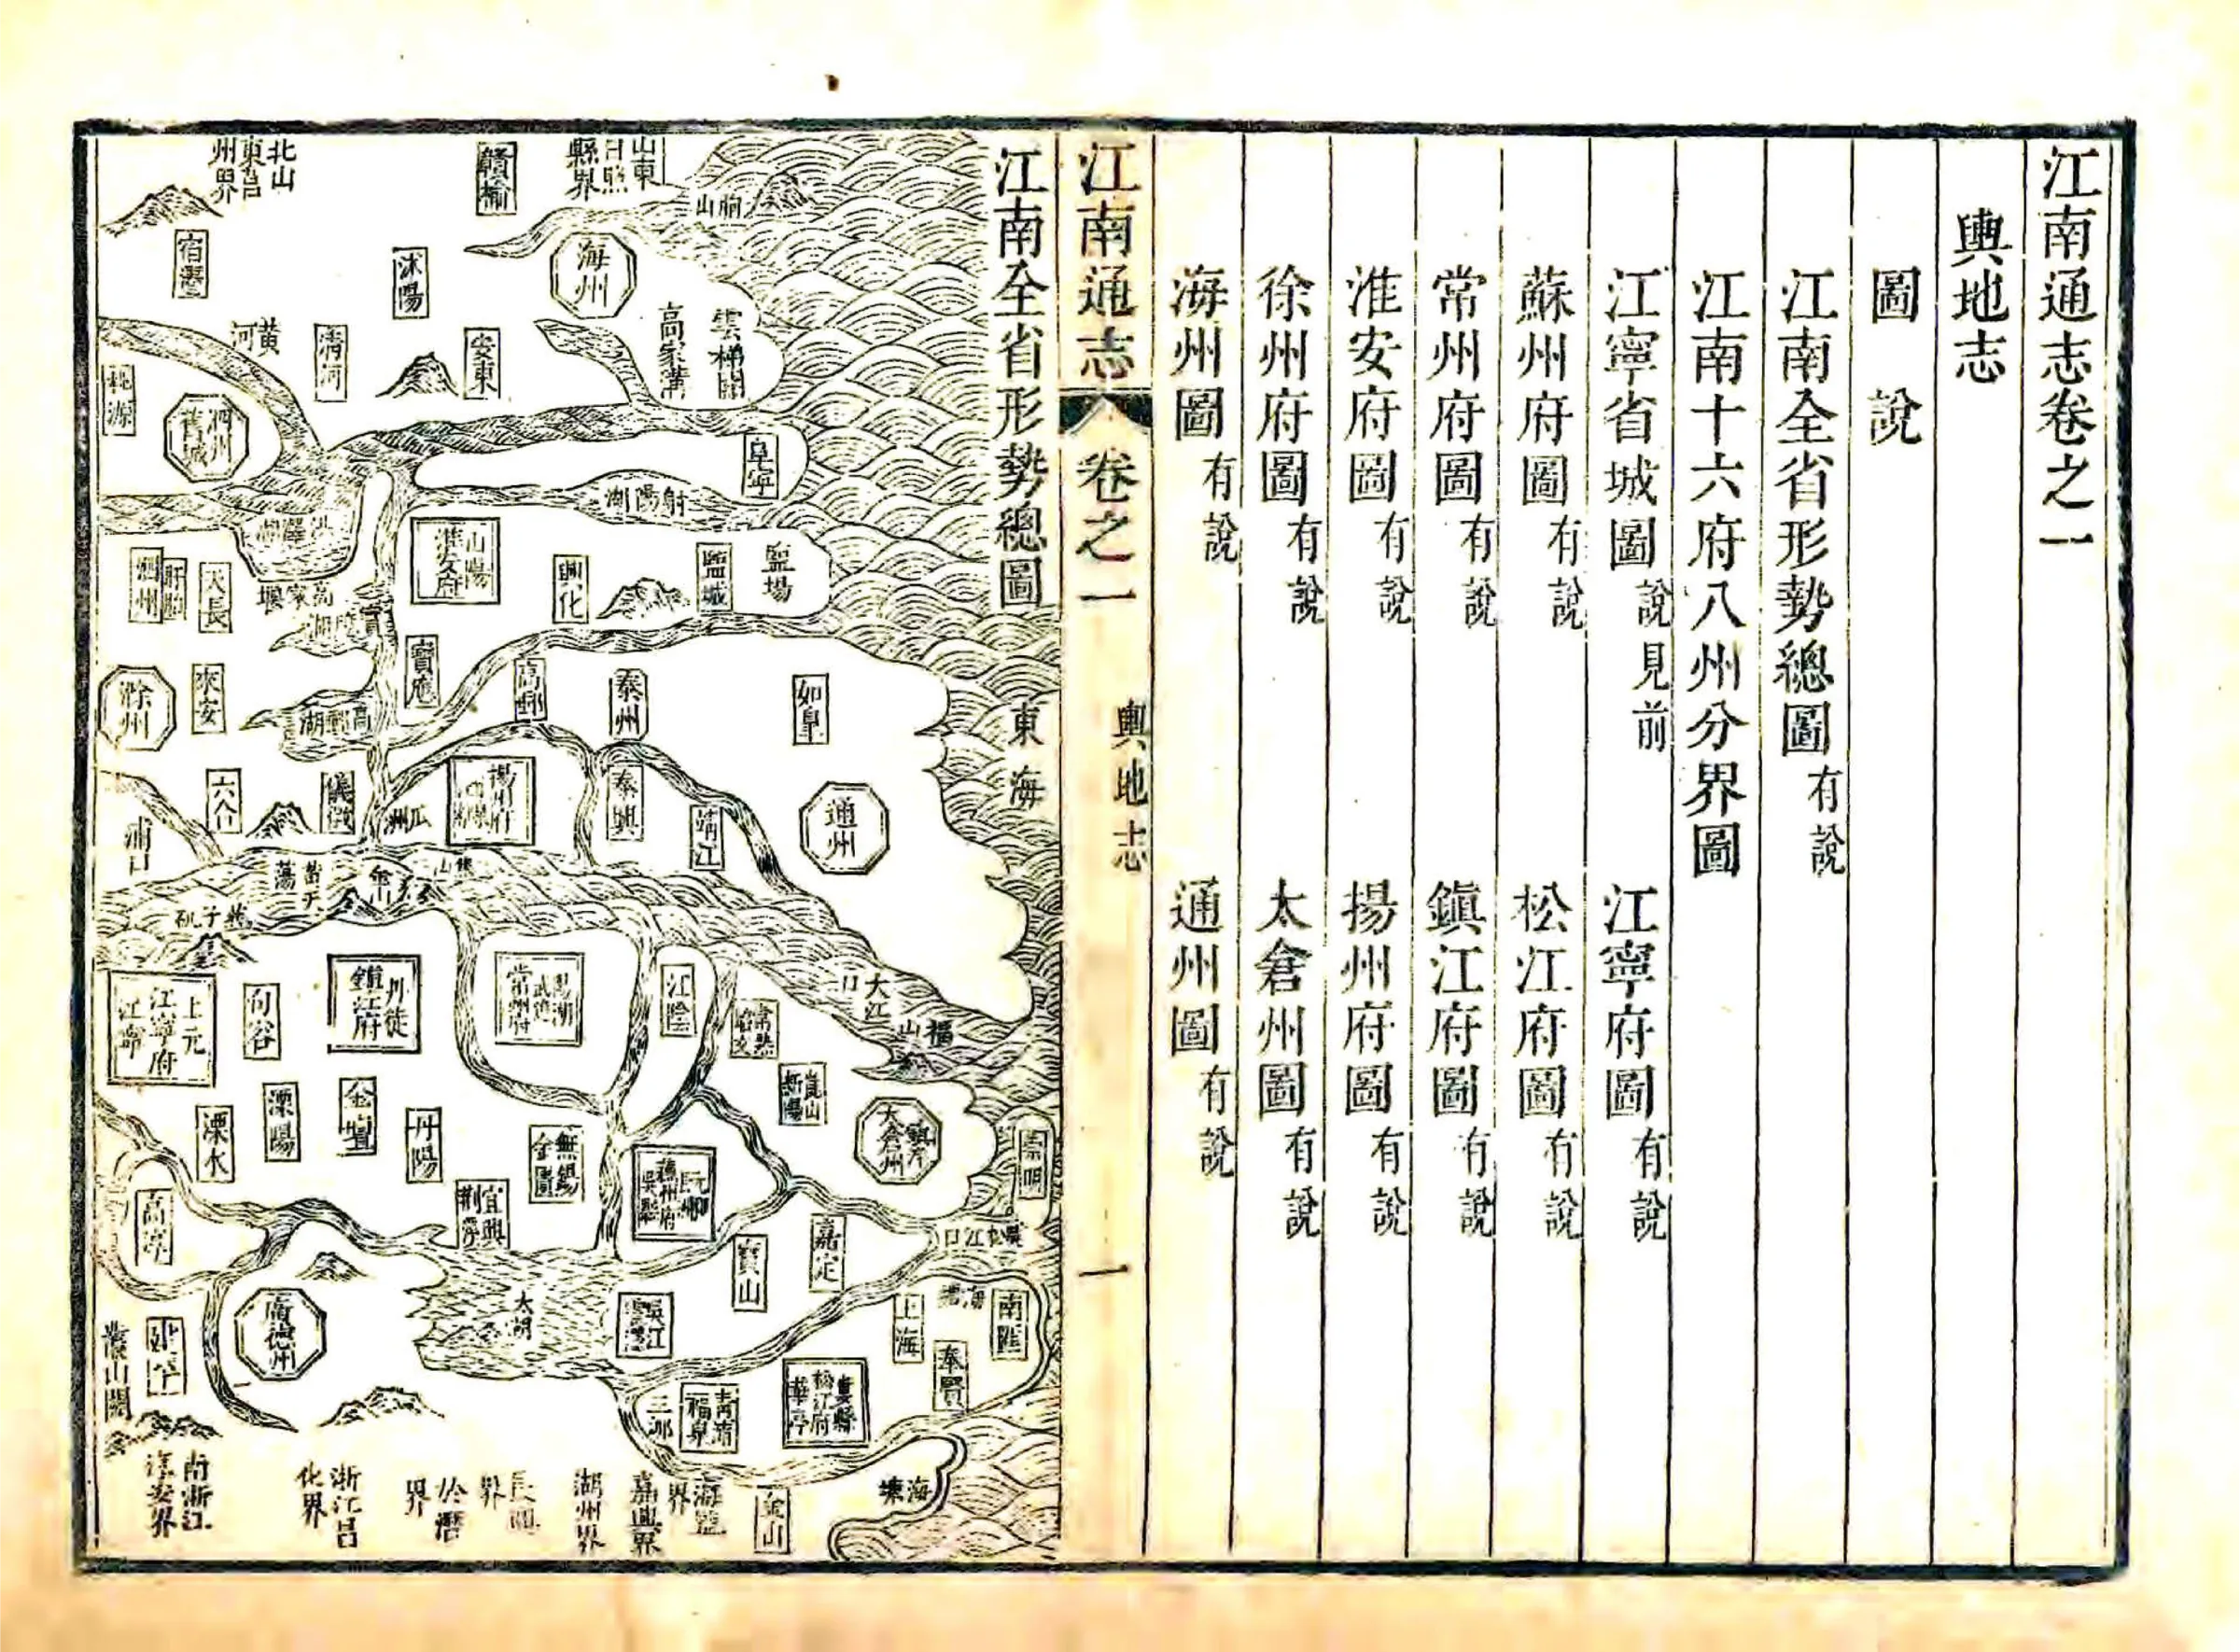 江南通志卷之一
輿地志
圖說
江南全省形勢總圖有說
江南十六府八州分界圖
江寧省城圖說見前 江寧府圖有說
蘇州府圖有說 松江府圖有說
常州府圖有說 鎮江府圖有說
淮安府圖有說 揚州府圖有說
徐州府圖有說 太倉州圖有說
海州圖有說 通州圖有說
江南通志 卷之一 輿地志 一
江南全省形勢總圖
東海
山東日照縣界
贛榆
北山東昌州界
朐山
海州
沭陽
宿遷
雲梯關
高家溝
安東
清河
黃河
桃源
泗州舊城
阜寧
射陽湖
洪澤湖
山陽
淮安府
鹽場
鹽城
興化
天長
盱眙
泗州
高家堰
寶應
高郵
泰州
如皋
來安
滁州
高郵湖
揚州府
泰興
靖江
通州
瓜洲
儀徵
六合
浦口
焦山
金山
黃天蕩
燕子磯
大江口
福山
江陰
陽湖
武進
常州府
丹徒
鎮江府
句谷
上元
江寧府
江寧
常熟
昭文
崑山
新陽
鎮洋
太倉州
崇明
無錫
金匱
丹陽
金壇
溧陽
溧水
宜興
荊溪
蘇州府
吳縣
高淳
吳松江口
嘉定
寶山
太湖
吳江
震澤
廣德州
建平
叢山關
上海
南匯
奉賢
海塘
婁縣
松江府
華亭
青浦
福泉
三泖
海塘
金山
海鹽界
嘉興界
湖州界
長興界
於潛界
浙江昌化界
南浙江淳安界